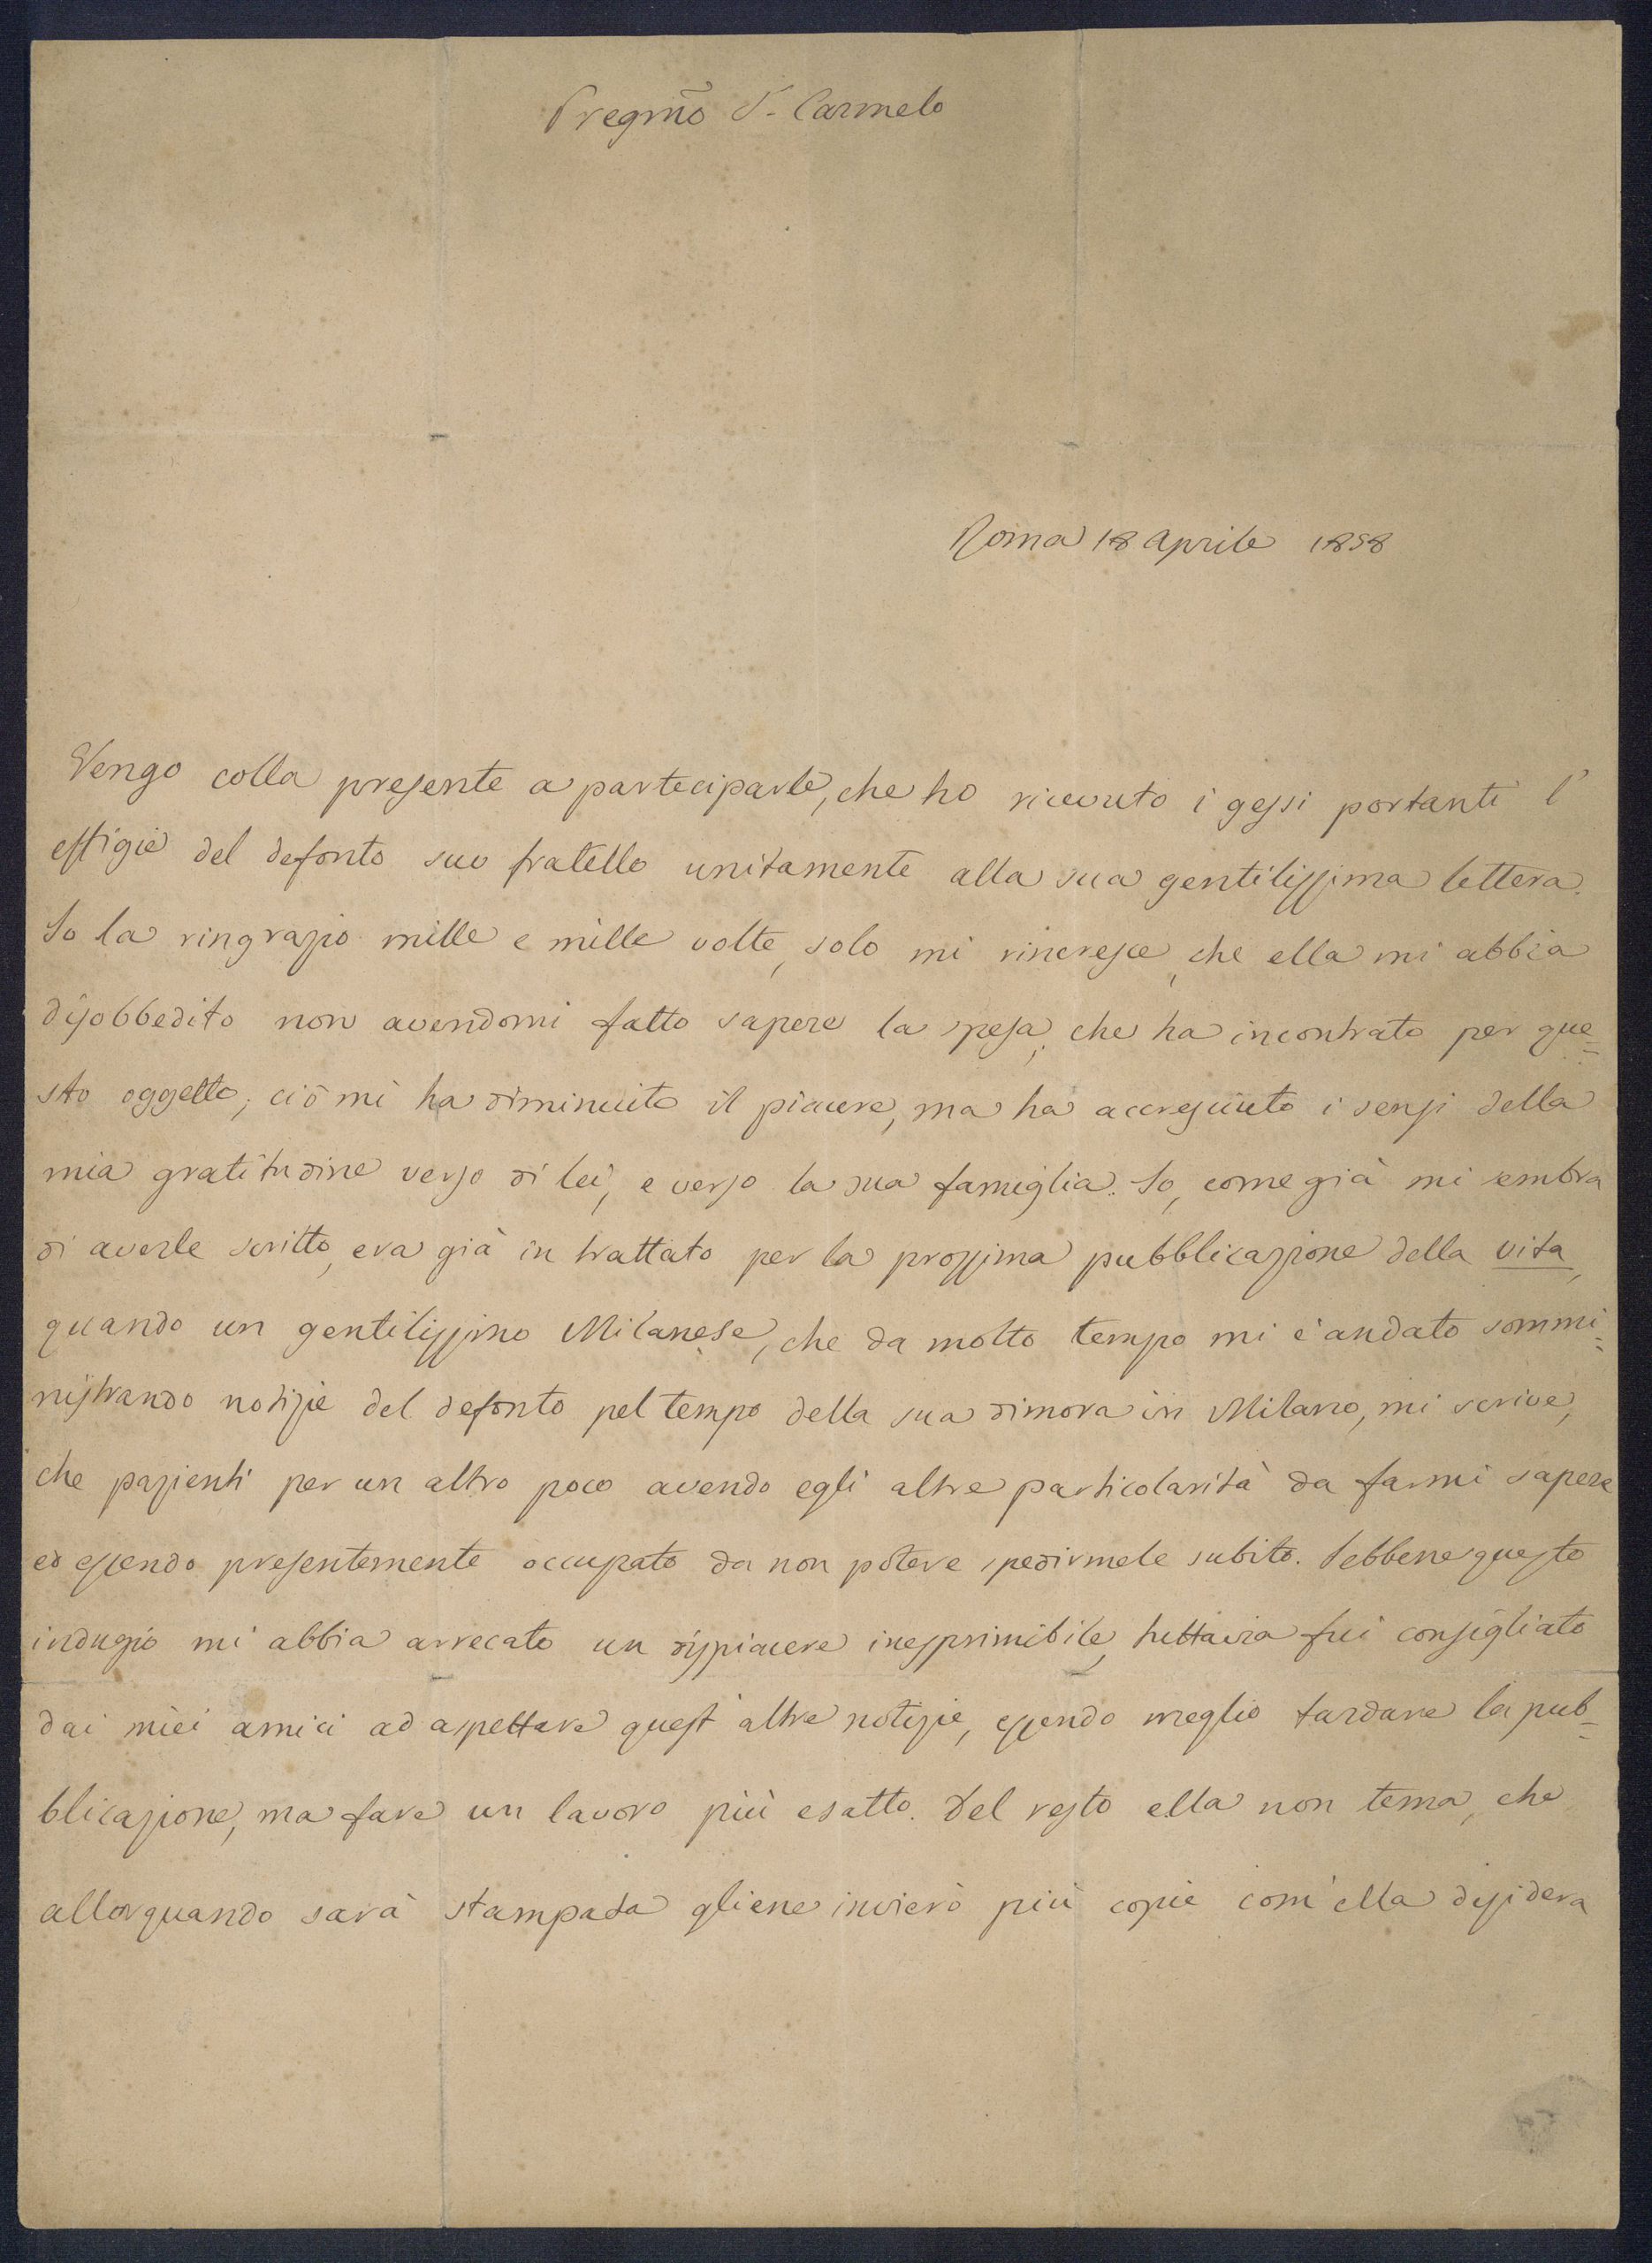 Pregmõ S. Carmelo
Roma 18 aprile 1858
Vengo colla presente a parteciparle, che ho ricevuto i gessi portanti l'
effigie del defonto suo fratello unitamente alla sua gentilissima lettera.
Io la ringrazio mille e mille volte, solo mi rincresce, che ella mi abbia
disobbedito non avendomi fatto sapere la spesa, che ha incontrato per que=
sto oggetto; ciò mi ha diminuito il piacere, ma ha accresciuto i sensi della
mia gratitudine verso di lei, e verso la sua famiglia. Io, come già mi sembra
di averle scritto, era già in trattato per la prossima pubblicazione della vita,
quando un gentilissimo Milanese, che da molto tempo mi è andato sommi=
nistrando notizie del defonto pel tempo della sua dimora in Milano, mi scrive,
che pazienti per un altro poco avendo egli altre particolarità da farmi sapere
ed essendo presentemente occupato da non potere spedirmele subito. Sebbene questo
indugio mi abbia arrecato un dispiacere inesprimibile, tuttavia fui consigliato
dai miei amici ad aspettare quest'altre notizie, essendo meglio tardare la pub=
blicazione, ma fare un lavoro più esatto. Del resto ella non tema, che
allorquando sarà stampata gliene invierò più copie com'ella desidera